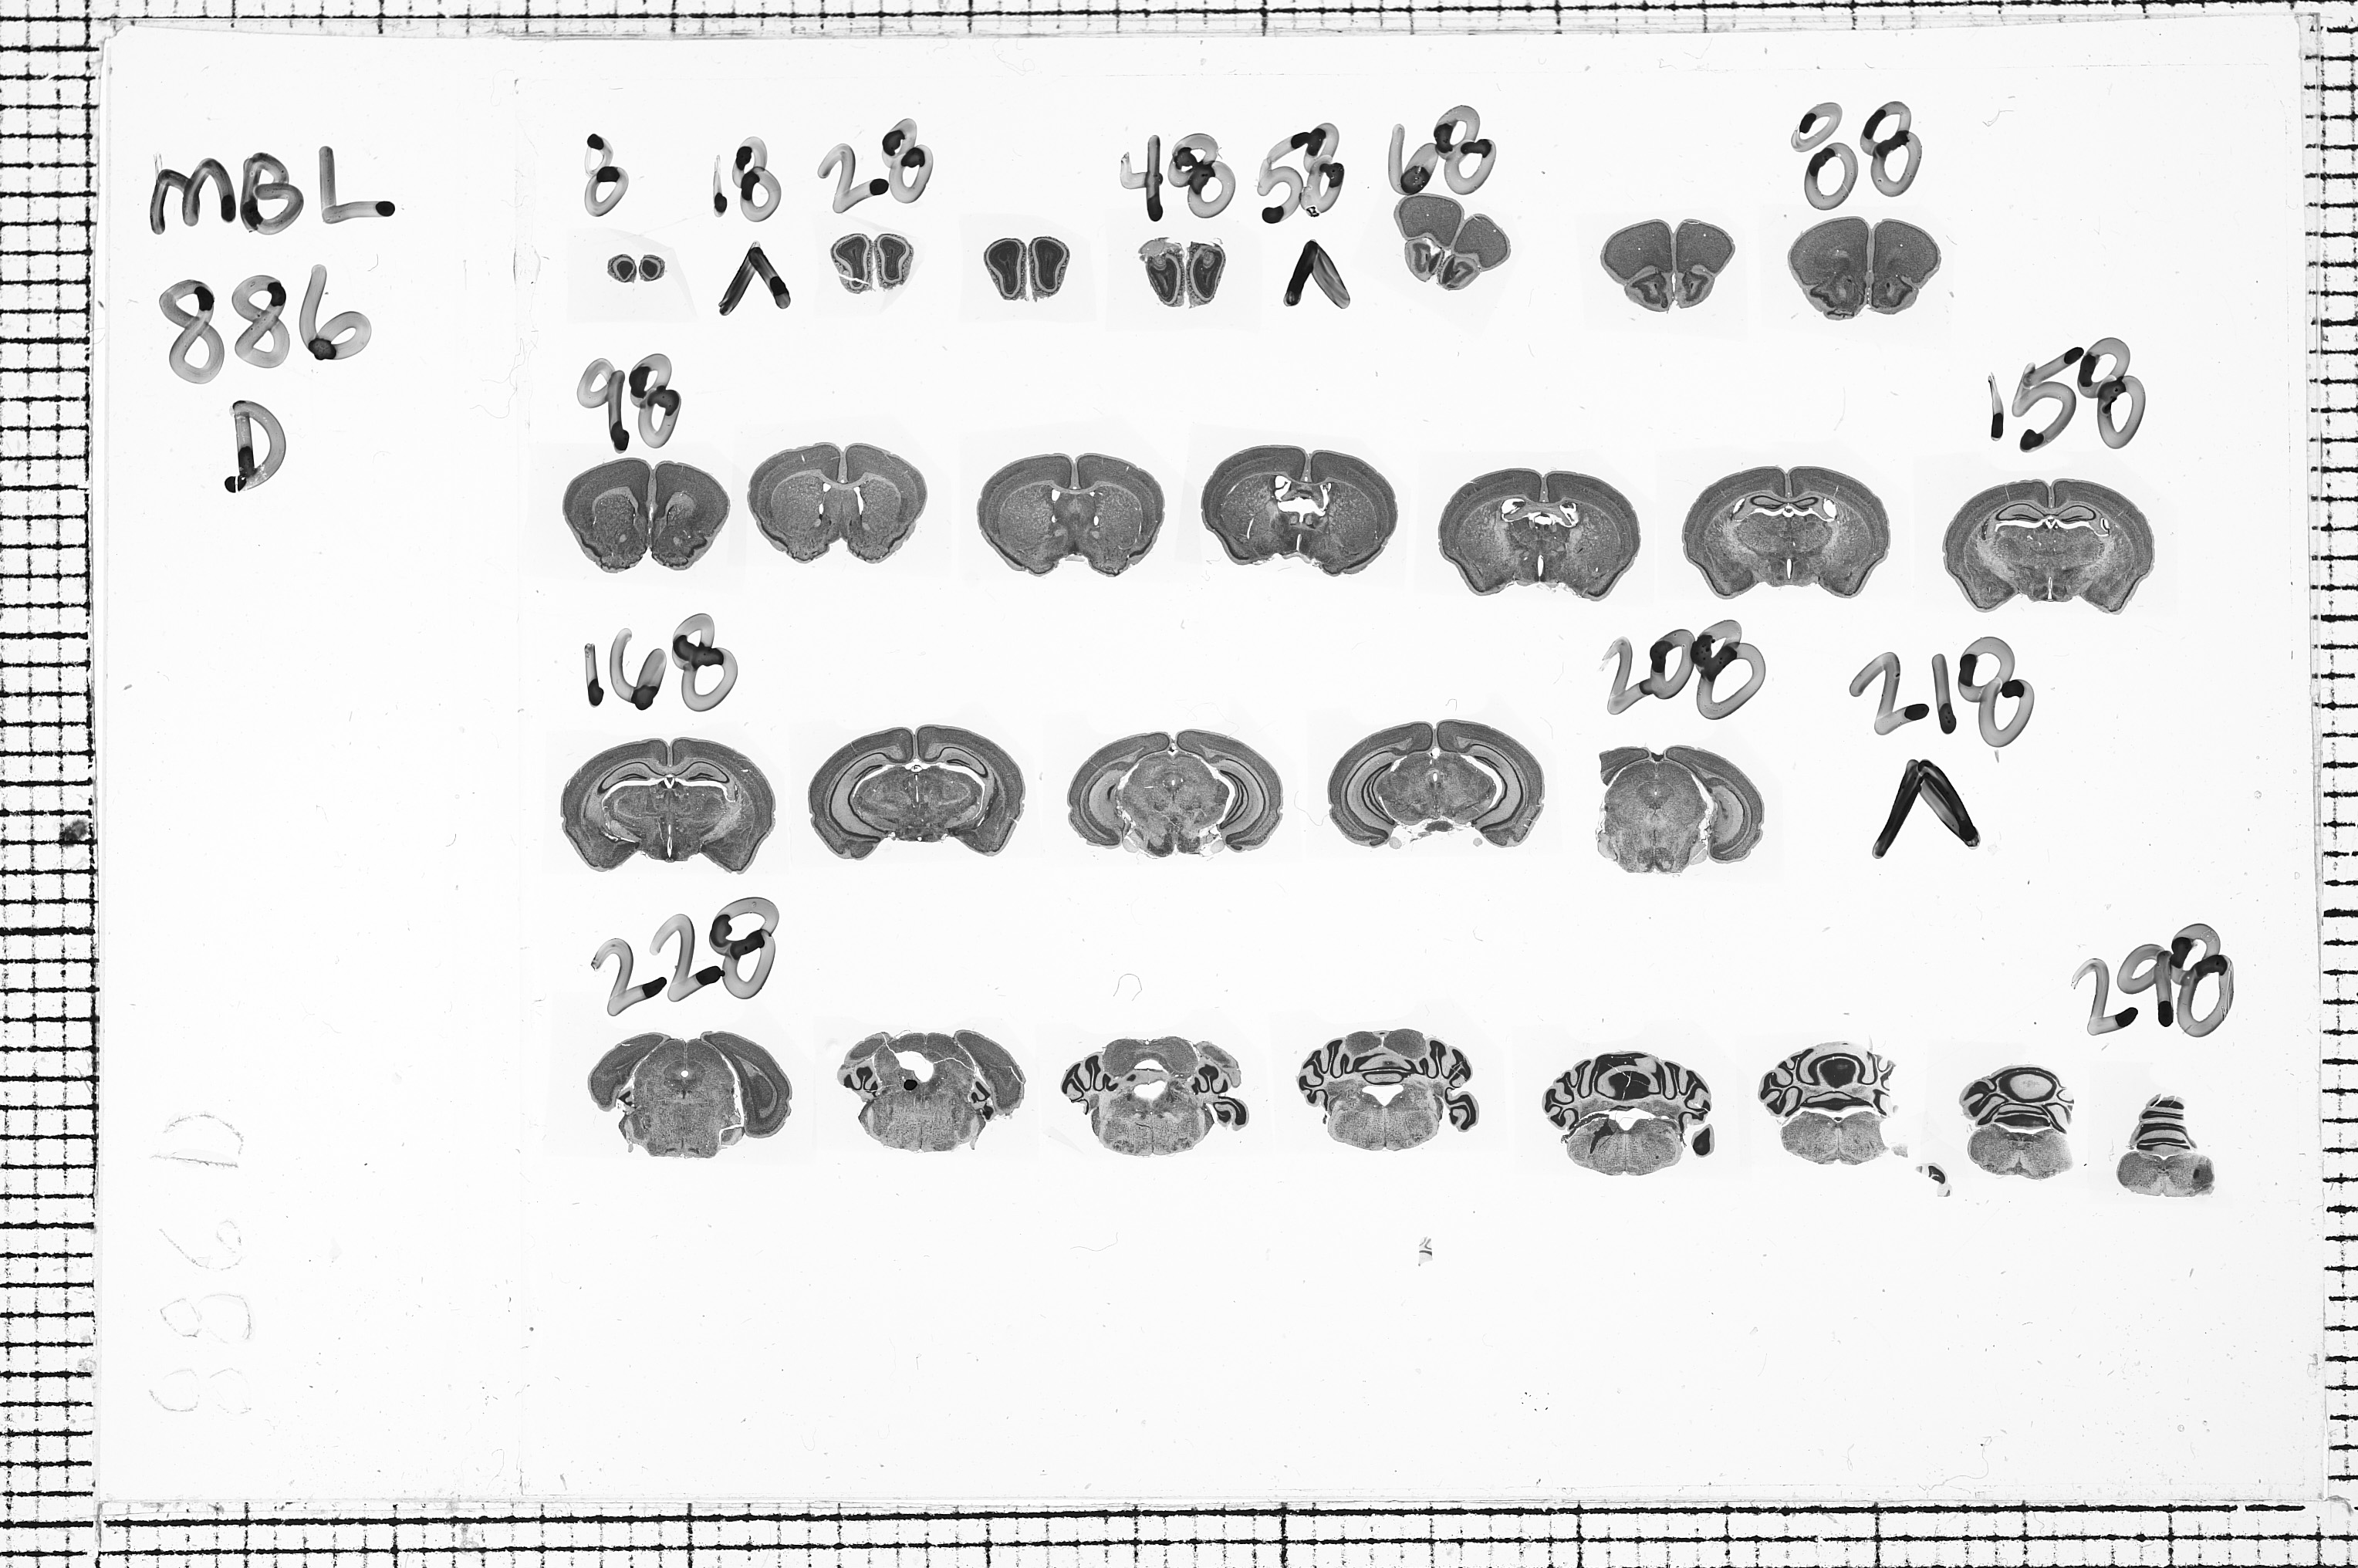 MBL
886
D
8 18 28 48 58 68 88
Λ Λ
98 158
168 208 218
Λ
228 298
886 D